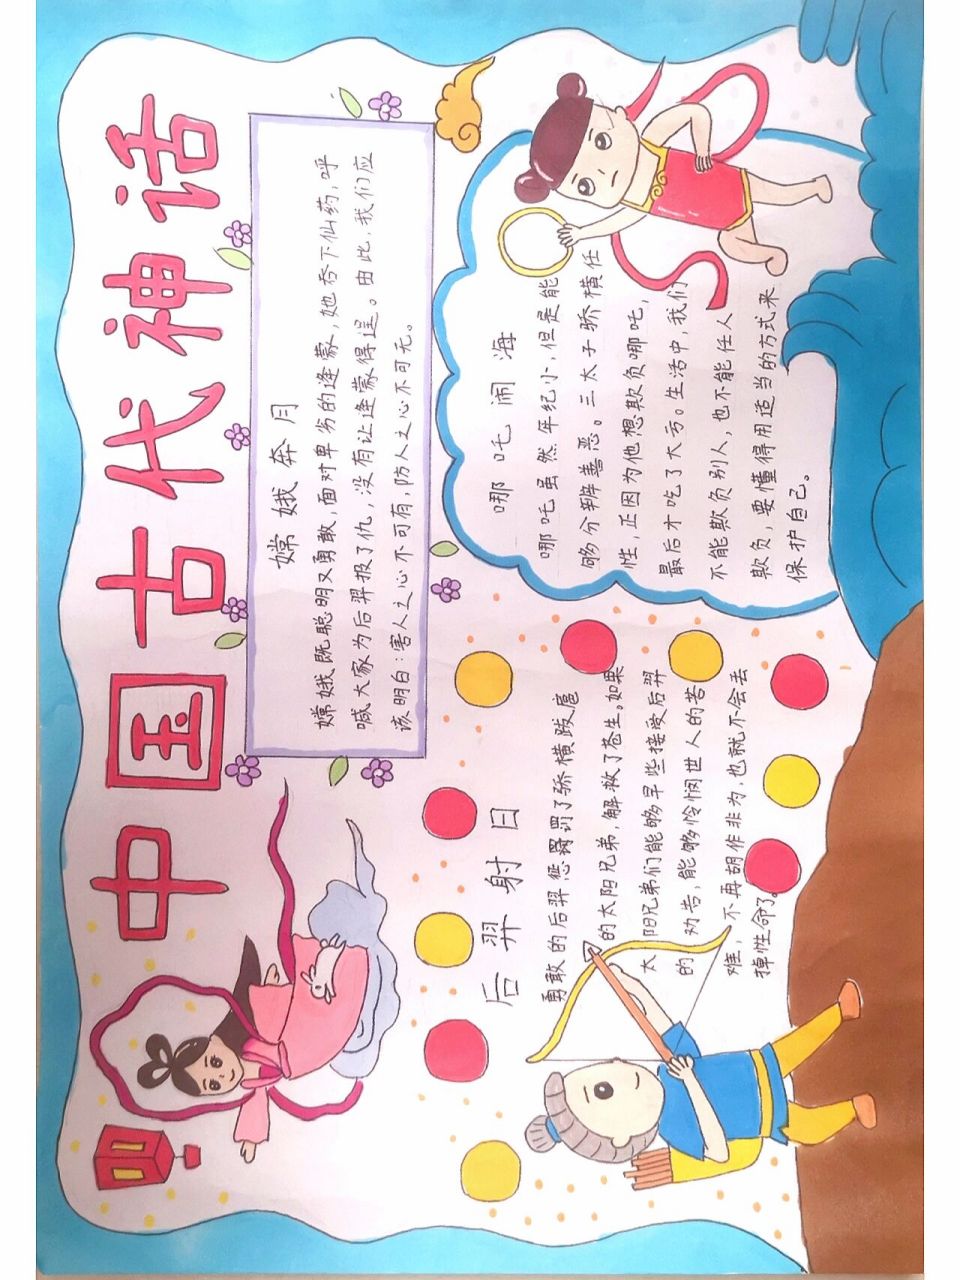 中国古代神话
嫦娥奔月
嫦娥既聪明又勇敢,面对卑劣的逢蒙,她吞下仙药,呼
喊大家为后羿报了仇,没有让逢蒙得逞。由此,我们应
该明白:害人之心不可有,防人之心不可无。
哪吒闹海
哪吒虽然年纪小,但是能
够分辨善恶。三太子骄横任
性,正因为他想欺负哪吒,
最后才吃了大亏。生活中,我们
不能欺负别人,也不能任人
欺负,要懂得用适当的方式来
保护自己。
后羿射日
勇敢的后羿惩罚了骄横跋扈
的太阳兄弟,解救了苍生。如果
太阳兄弟们能够早些接受后羿
的劝告,能够怜悯世人的苦
难,不再胡作非为,也就不会丢
掉性命了。